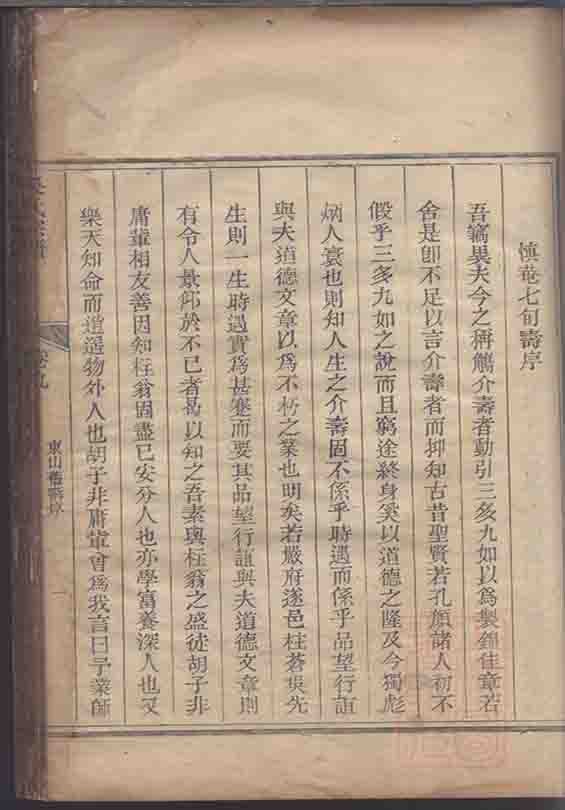 慎菴七旬壽序
吾竊異夫今之稱觴介壽者動引三多九如以爲製錦佳章若
舍是卽不足以言介壽者而抑知古昔聖賢若孔顏諸人初不
假乎三多九如之說而且窮途終身奚以道德之隆及今獨彪
炳人寰也則知人生之介壽固不係乎時遇而係乎品望行誼
與夫道德文章以爲不朽之業也明矣若嚴府遂邑柱蒼吳先
生則一生時遇實爲甚蹇而要其品望行誼與夫道德文章則
有令人景仰於不已者曷以知之吾素與柱翁之盛徒胡子非
庸輩相友善因知柱翁固盡已安分人也亦學富養深人也又
樂天知命而逍遥物外人也胡子非庸輩曾爲我言曰予業師
吳氏宗譜
卷九
東山舊壽序
一